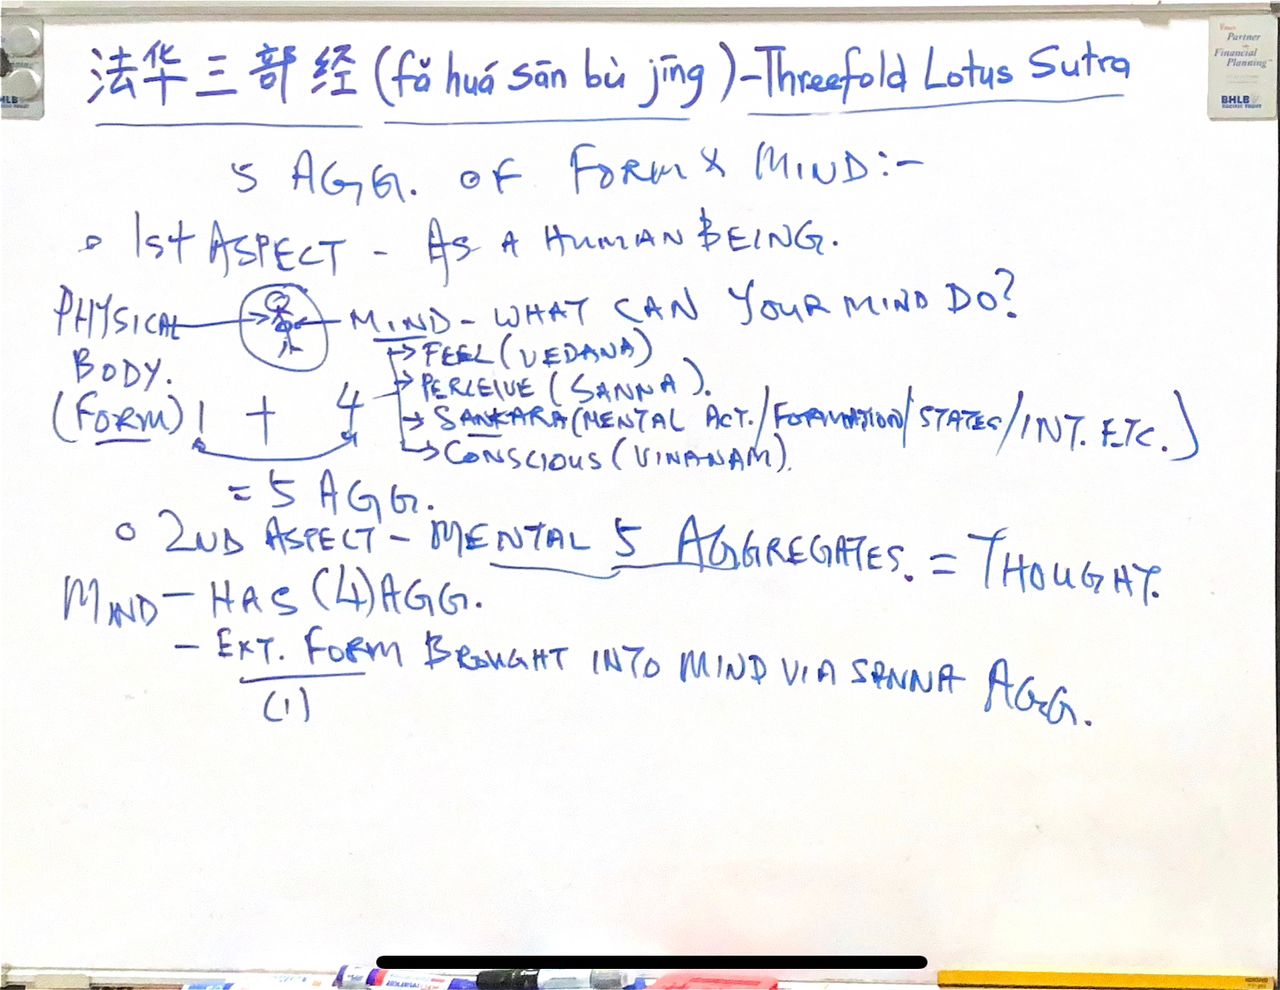 法华三部经 (fǎ huá sān bù jīng) - Threefold Lotus Sutra
5 AGG. OF FORM & MIND:-
1st ASPECT - AS A HUMAN BEING.
PHYSICAL BODY. (FORM)
MIND - WHAT CAN YOUR MIND DO?
→ FEEL (VEDANA)
→ PERCEIVE (SANNA).
→ SANKARA (MENTAL ACT./FORMATION/STATES/INT. ETC.)
→ CONSCIOUS (VINANAM).
1 + 4
= 5 AGG.
2ND ASPECT - MENTAL 5 AGGREGATES. = THOUGHT.
MIND - HAS (4) AGG.
- EXT. FORM BROUGHT INTO MIND VIA SANNA AGG.
(1)
Partner
Financial
Planning
BHLB